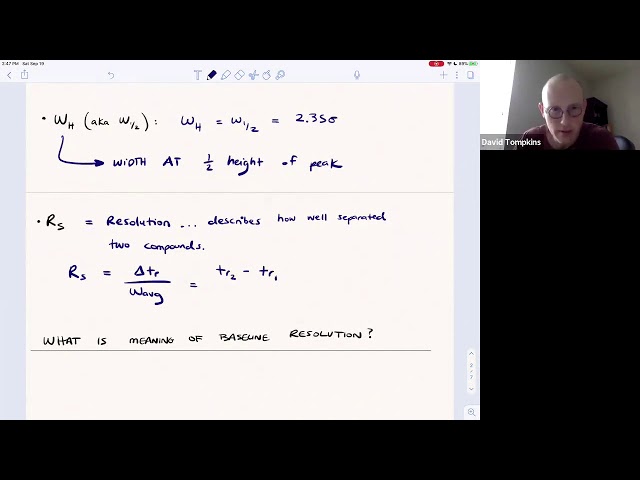 2:47 PM Sat Sep 19
89%
David Tompkins
• WH (aka W1/2): WH = W1/2 = 2.35σ
WIDTH AT 1/2 height of peak
• Rs = Resolution ... describes how well separated
two compounds.
Rs = Δtr / Wavg = tr2 - tr1
WHAT IS MEANING OF BASELINE RESOLUTION?